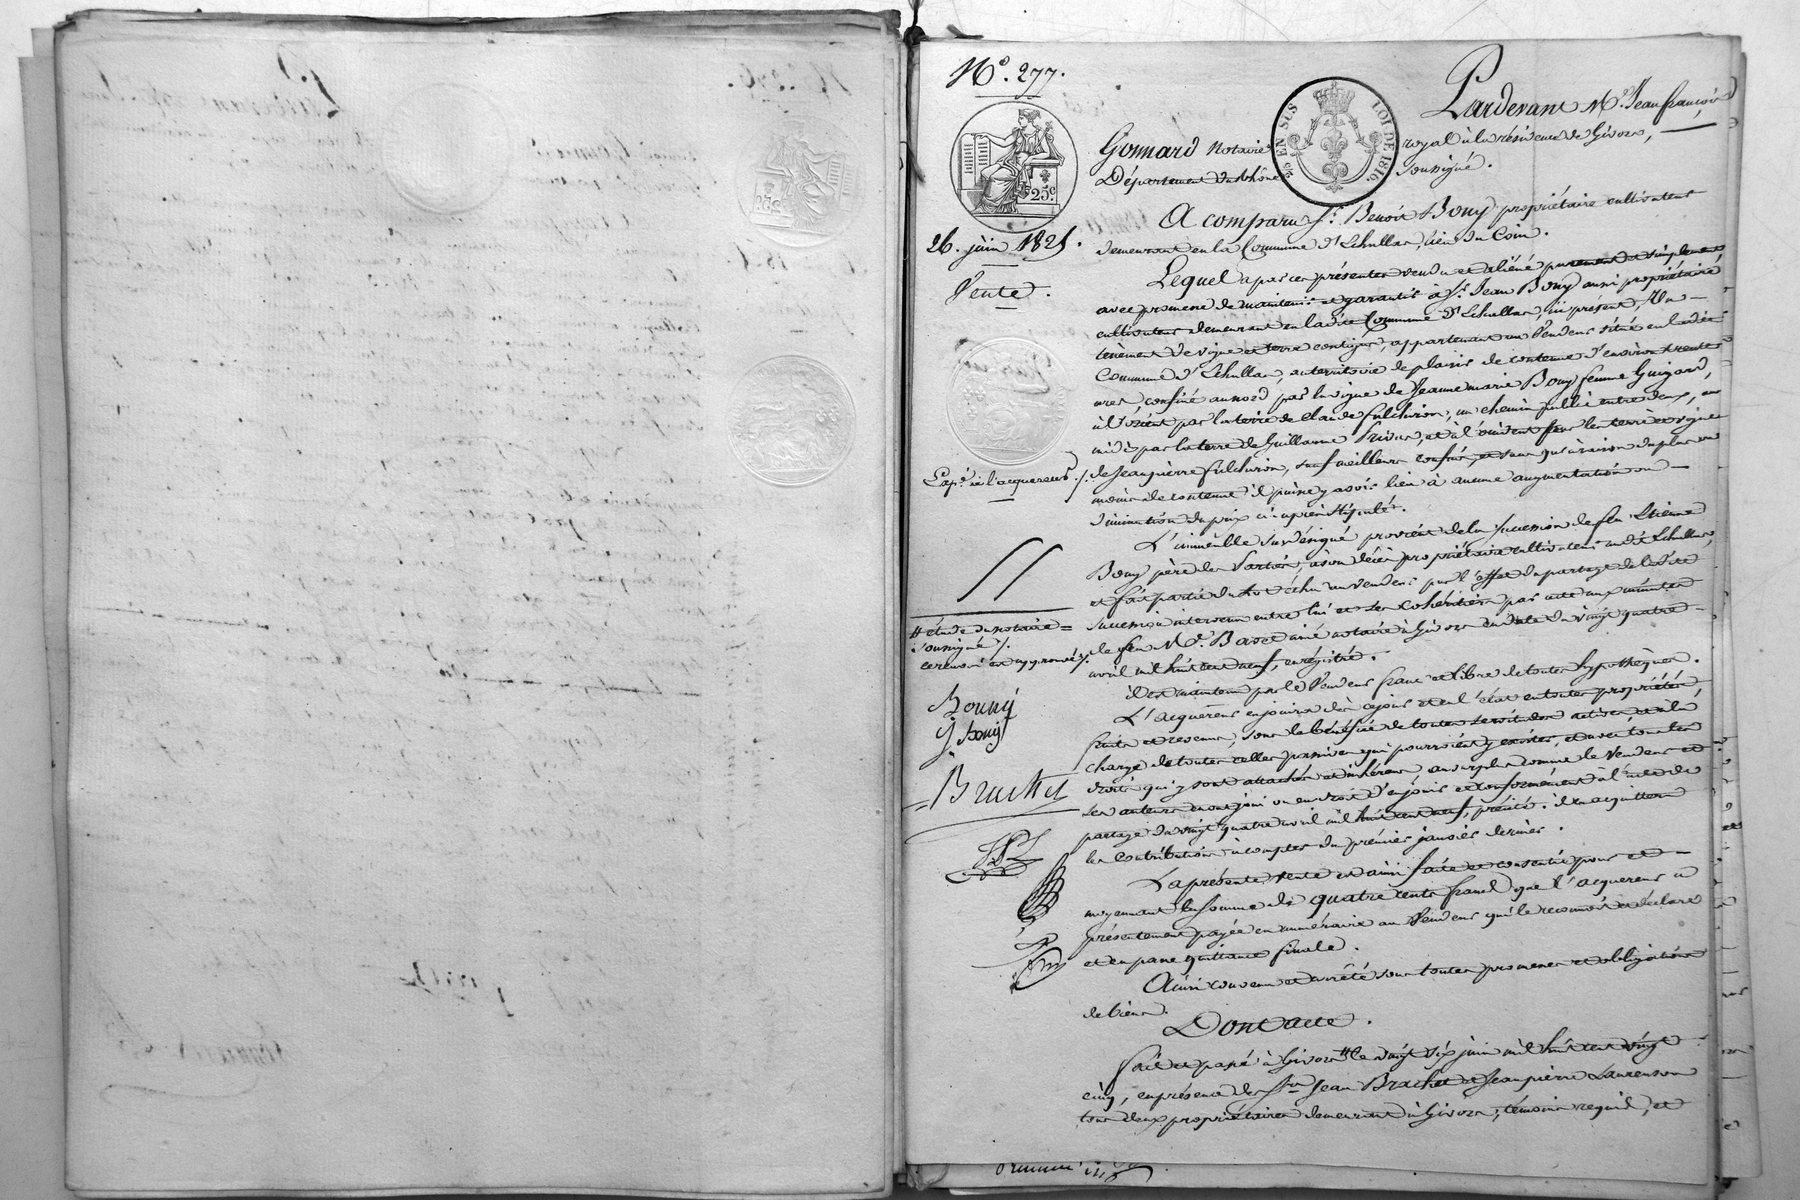 N.º 277.
25.c
EN SUS
LOI DE 1816.
26. juin 1825.
Vente.
Exp.on à l'acquereur /.
# étude du notaire =
soussigné /.
ce renvoi est approuvé /.
Bouy
J Bouy
Brachet
Pardevant M.e Jean françois
Gonnard Notaire royal à la résidence de Givors,
Département du Rhône soussigné.
A comparu S.r Benoît Bouy propriétaire cultivateur
demeurant en la Commune d'Echallas, lieu du Coin.
Lequel a par ces présentes vendu et aliéné purement et simplement
avec promesse de maintenir et garantir à S.r Jean Bouy aussi propriétaire
cultivateur demeurant en la dite Commune d'Echallas, ici présent, Un
tènement de vigne et terre contigus, appartenant au Vendeur situé en la dite
Commune d'Echallas, au territoire de plainis de contenue d'environ trente
ares, confiné au nord par la vigne de Jeanne marie Bouy femme Guigard,
à l'orient par la terre de Claude fulchiron, un chemin public entre deux, au
midi par la terre de Guillaume Privas, et à l'occident par les terre et vigne
de Jean pierre fulchiron, sauf meilleurs confins, et sans qu'à raison du plus ou
moins de contenue il puisse y avoir lieu à aucune augmentation ou
diminution du prix ci-après stipulé.
L'immeuble sus désigné provient de la succession de feu Etienne
Bouy père des Parties, à son décès propriétaire cultivateur au dit Echallas,
et fait partie du lot échu au vendeur par l'effet du partage de la dite
succession intervenu entre lui et ses cohéritiers par acte aux minutes
de feu M.e Basset ainé notaire à Givors en date du vingt quatre
avril mil huit cent neuf, enrégistré.
Il est maintenu par le Vendeur franc et libre de toutes hypothèques.
L'acquéreur en jouira dès ce jour et en l'état en toutes propriétés,
fruits et revenus, sous le bénéfice de toutes servitudes actives et à la
charge de toutes celles passives qui pourroient y exister, et avec tous les
droits qui y sont attachés et inhérens, au surplus comme le Vendeur et
ses auteurs en ont joui ou eu droit d'en jouir et conformément à l'acte de
partage du vingt quatre avril mil huit cent neuf, précité. il en acquittera
les contributions à compter du premier janvier dernier.
La présente vente est ainsi faite et consentie pour et
moyennant la somme de quatre cents francs que l'acquereur a
présentement payée en numéraire au Vendeur qui le reconnoit et déclare
et en passe quittance finale.
Ainsi convenu et arrêté sous toutes promesses et obligations
de biens.
Dont acte.
Fait et passé à Givors # le vingt six juin mil huit cent vingt
cinq, en présence de S.rs Jean Brachet et Jean pierre Laurenson
tous deux propriétaires demeurant à Givors, témoins requis, et